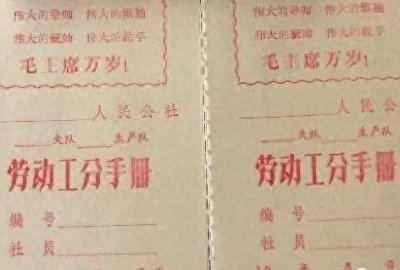 伟大的导师 伟大的領袖
伟大的統帥 伟大的舵手
毛主席万岁!
人民公社
大队 生产队
劳动工分手册
编号
社员
伟大的导师 伟大的領袖
伟大的統帥 伟大的舵手
毛主席万岁!
人民公社
大队 生产队
劳动工分手册
编号
社员